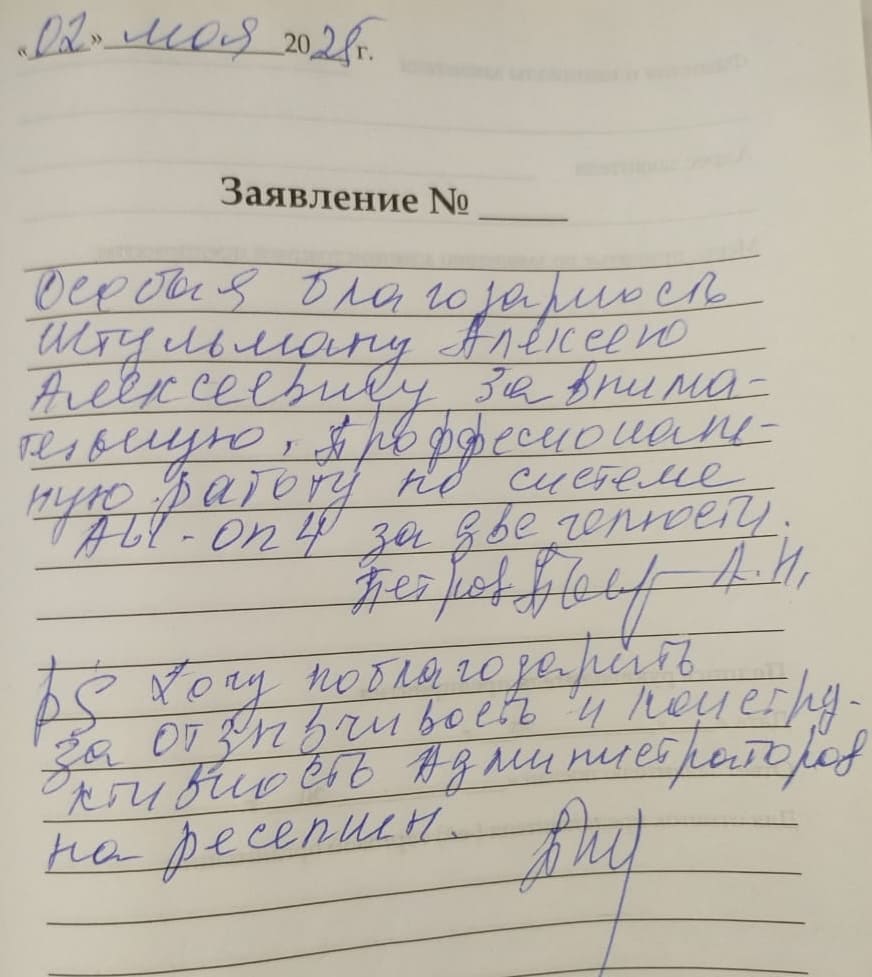 «02» мая 2025 г.
Заявление №
Особая благодарность
Штульману Алексею
Алексеевичу за внима-
тельную, проффесиональ-
ную работу по системе
All-on 4 за две челюсти.
Петров А.Н,
PS Хочу поблагодарить
за отзывчивость и констру-
ктивность Администраторов
на ресепшен.